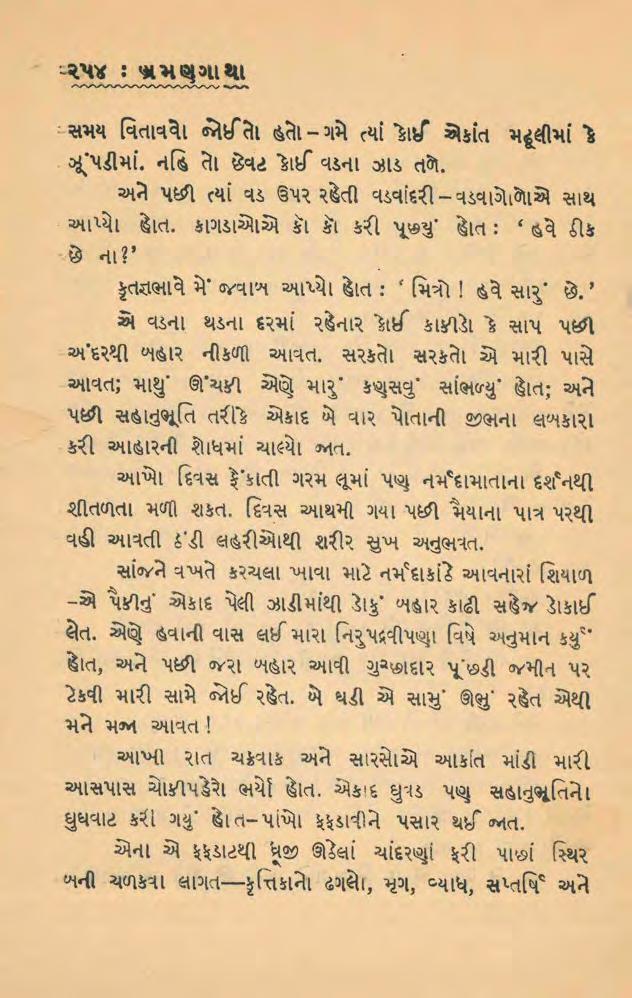 ૨૫૪ : ભ્રમણગાથા
સમય વિતાવવો જોઈતો હતો – ગમે ત્યાં કોઈ એકાંત મઢૂલીમાં કે
ઝૂંપડીમાં. નહિ તો છેવટ કોઈ વડના ઝાડ તળે.
અને પછી ત્યાં વડ ઉપર રહેતી વડવાંદરી – વડવાગોળોએ સાથ
આપ્યો હોત. કાગડાઓએ કૉ કૉ કરી પૂછ્યું હોત : ‘ હવે ઠીક
છે ના?’
કૃતજ્ઞભાવે મેં જવાબ આપ્યો હોત : ‘ મિત્રો ! હવે સારું છે.’
એ વડના થડના દરમાં રહેનાર કોઈ કાકીડો કે સાપ પછી
અંદરથી બહાર નીકળી આવત. સરકતો સરકતો એ મારી પાસે
આવત; માથું ઊંચકી એણે મારું કણસવું સાંભળ્યું હોત; અને
પછી સહાનુભૂતિ તરીકે એકાદ બે વાર પોતાની જીભના લબકારા
કરી આહારની શોધમાં ચાલ્યો જાત.
આખો દિવસ ફેંકાતી ગરમ લૂમાં પણ નર્મદામાતાના દર્શનથી
શીતળતા મળી શકત. દિવસ આથમી ગયા પછી મૈયાના પાત્ર પરથી
વહી આવતી ઠંડી લહરીઓથી શરીર સુખ અનુભવત.
સાંજને વખતે કરચલા ખાવા માટે નર્મદાકાંઠે આવનારાં શિયાળ
–એ પૈકીનું એકાદ પેલી ઝાડીમાંથી ડોકું બહાર કાઢી સહેજ ડોકાઈ
લેત. એણે હવાની વાસ લઈ મારા નિરુપદ્રવીપણા વિષે અનુમાન કર્યું
હોત, અને પછી જરા બહાર આવી ગુચ્છાદાર પૂંછડી જમીન પર
ટેકવી મારી સામે જોઈ રહેત. બે ઘડી એ સામું ઊભું રહેત એથી
મને મજા આવત !
આખી રાત ચક્રવાક અને સારસોએ આકાંત માંડી મારી
આસપાસ ચોકીપહેરો ભર્યો હોત. એકાદ ઘુવડ પણ સહાનુભૂતિનો
ઘુઘવાટ કરી ગયું હોત– પાંખો ફફડાવીને પસાર થઈ જાત.
એના એ ફફડાટથી ધ્રૂજી ઊઠેલાં ચાંદરણાં ફરી પાછાં સ્થિર
બની ચળકવા લાગત—કૃત્તિકાનો ઢગલો, મૃગ, વ્યાધ, સપ્તર્ષિ અને